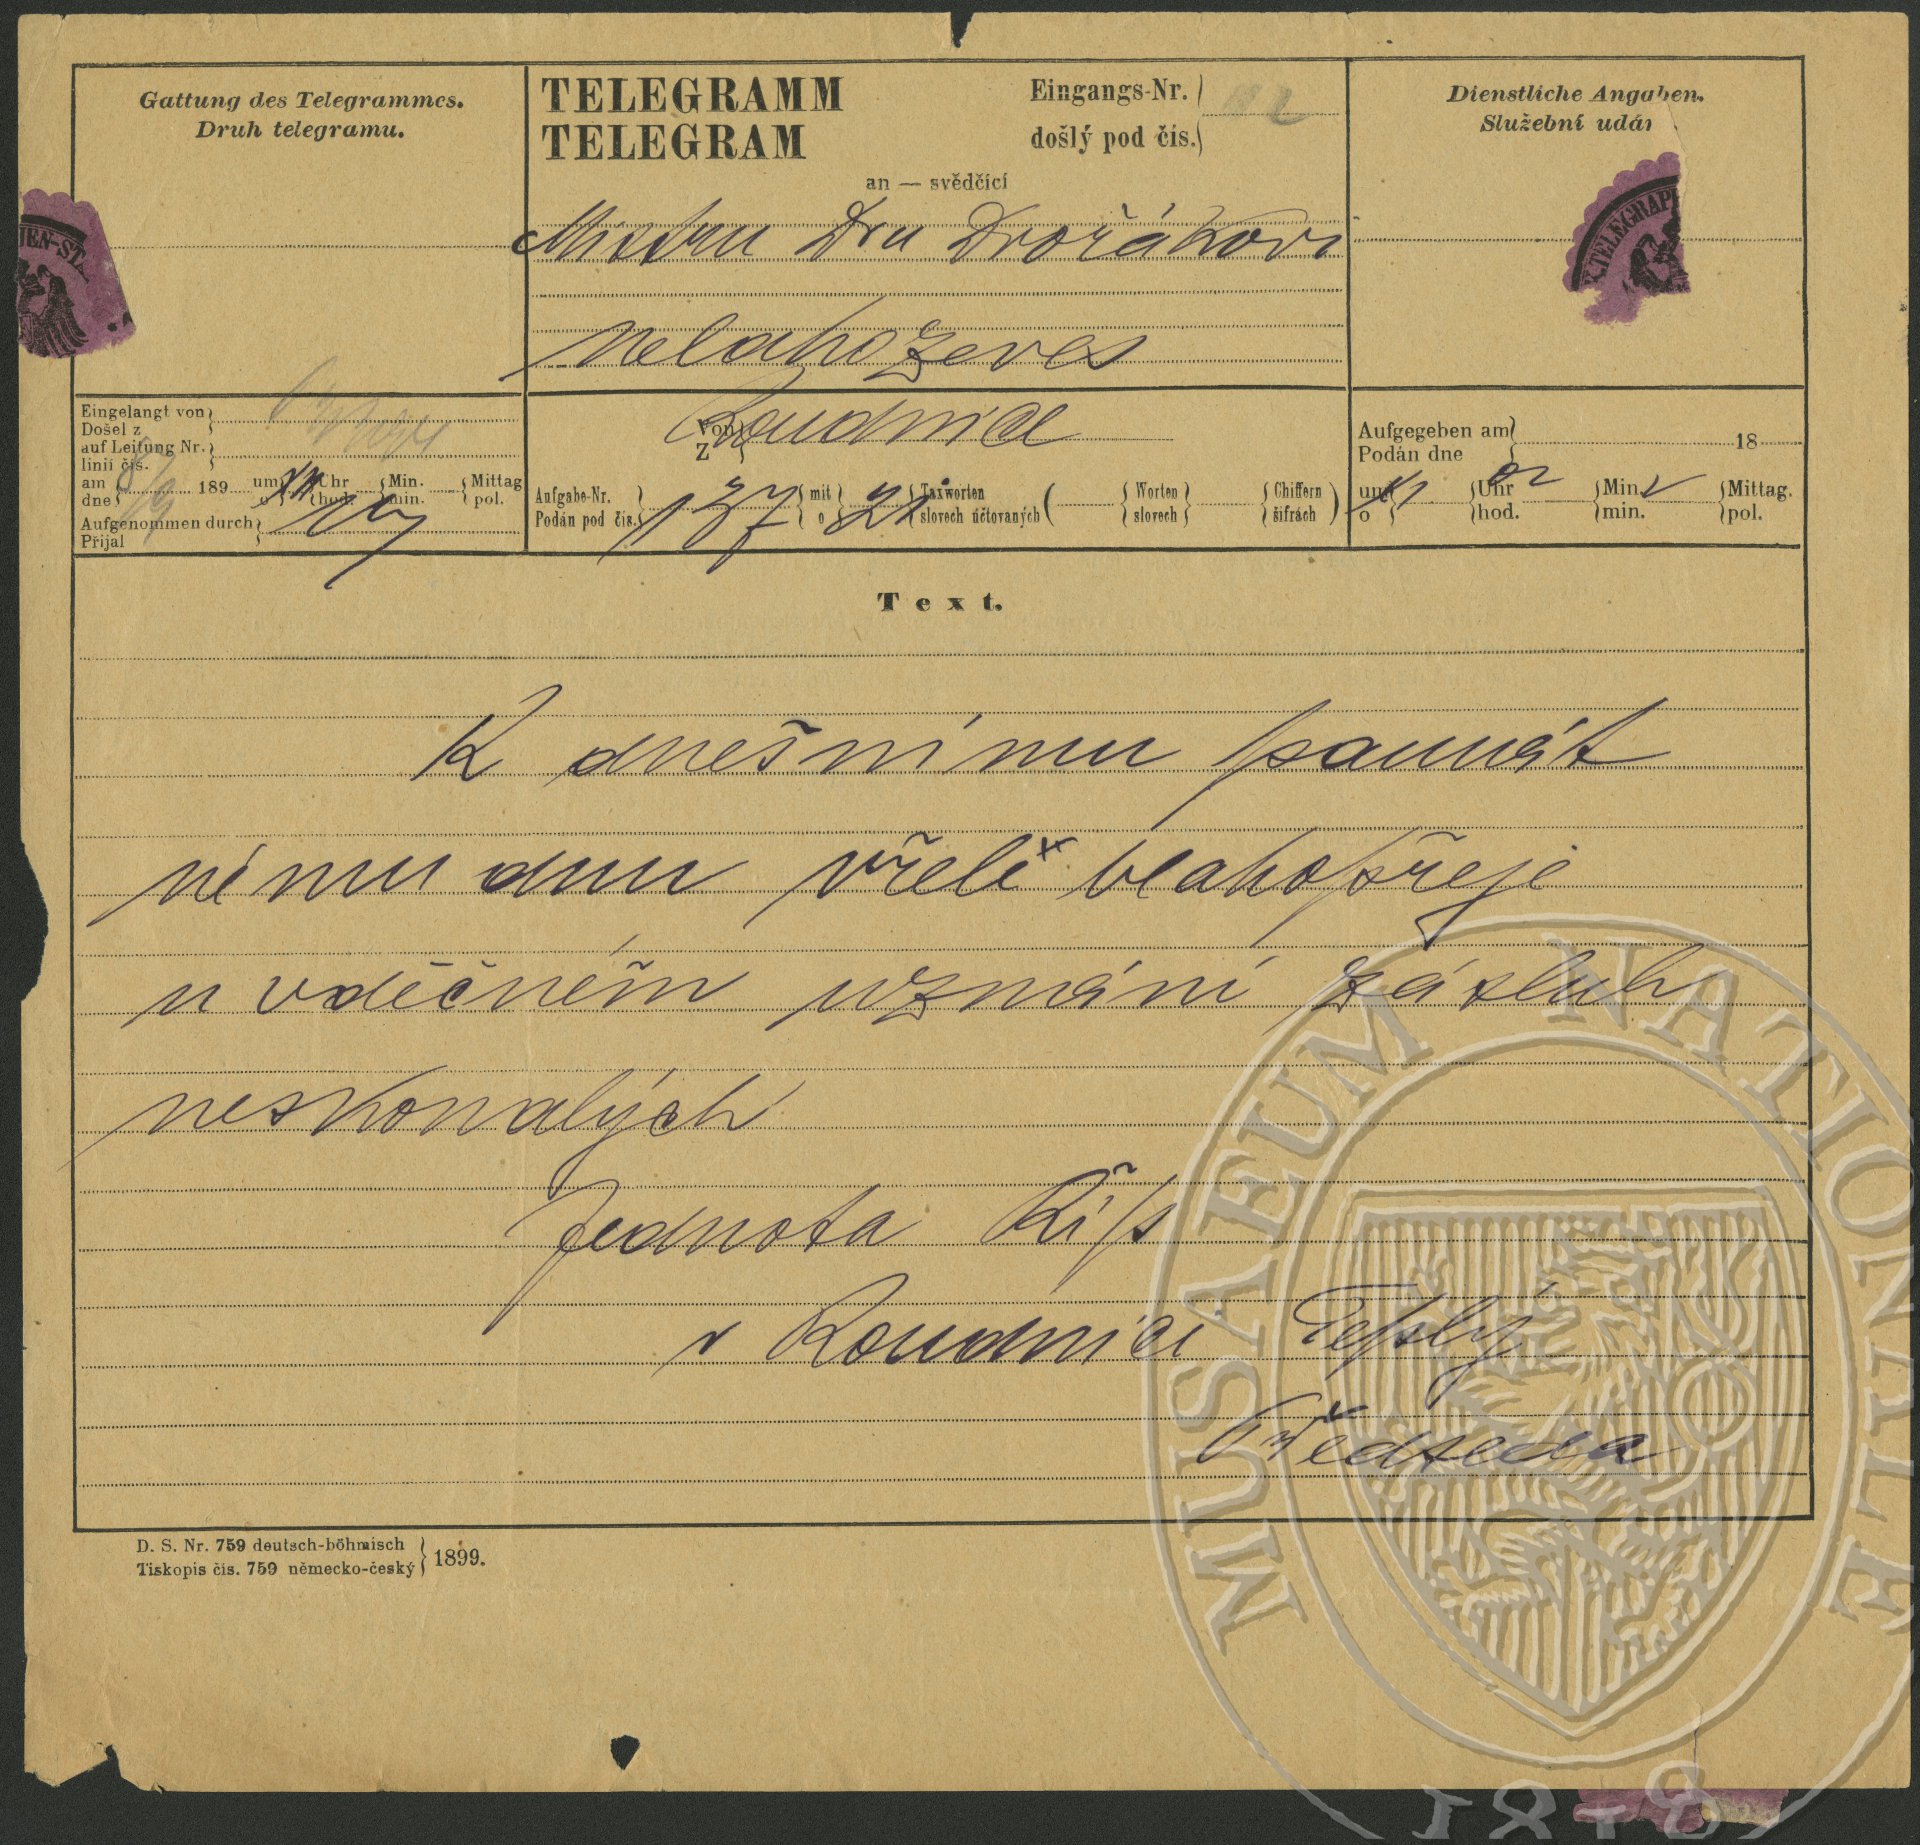 Gattung des Telegrammes.
Druh telegramu.
TELEGRAMM
TELEGRAM
Eingangs-Nr.
došlý pod čís.
an — svědčící
Mistru Dru Dvořákovi
Nelahozeves
Dienstliche Angaben.
Služební údaj
JEN-ST
K. TELEGRAPH
Eingelangt von
Došel z
auf Leitung Nr.
linii čís.
am 5/9 189 um Uhr Min. Mittag
dne o hod. min. pol.
Aufgenommen durch
Přijal
Von Roudnice
Z
Aufgabe-Nr. 137 mit 21 Taxworten ( Worten Chiffern )
Podán pod čís. o slovech účtovaných slovech šifrách
Aufgegeben am 18
Podán dne
um 11 Uhr Min. Mittag.
o hod. min. pol.
Text.
K dnešnímu památ
nému dnu vřele blahopřeje
u vděčném uznání zásluh
neskonalých
Jednota Říp
v Roudnici Teplý
Předseda
D. S. Nr. 759 deutsch-böhmisch
Tiskopis čís. 759 německo-český 1899.
MUSAEUM NATIONALE
1818